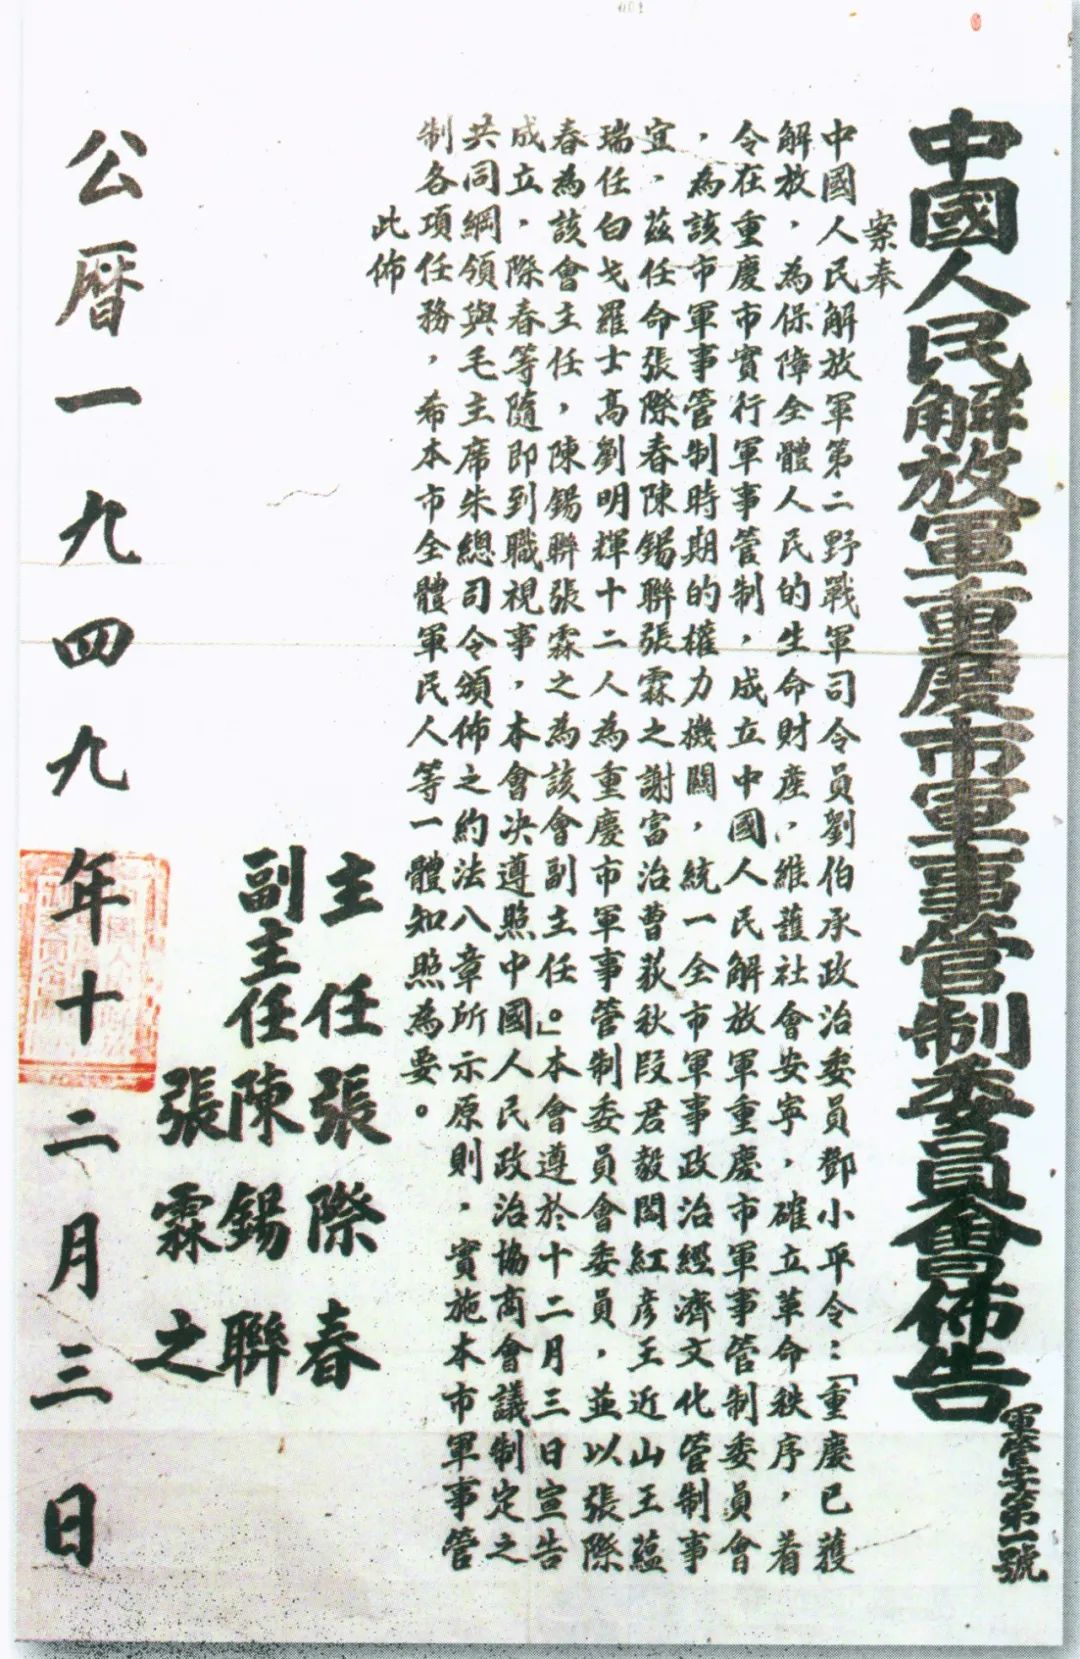 中國人民解放軍重慶市軍事管制委員會佈告
軍管字第一號
案奉
中國人民解放軍第二野戰軍司令員劉伯承政治委員鄧小平令：「重慶已獲
解放，為保障全體人民的生命財產，維護社會安寧，確立革命秩序，着
令在重慶市實行軍事管制，成立中國人民解放軍重慶市軍事管制委員會
，為該市軍事管制時期的權力機關，統一全市軍事政治經濟文化管制事
宜，茲任命張際春陳錫聯張霖之謝富治曹荻秋段君毅閻紅彦王近山王蘊
瑞任白戈羅士高劉明輝十二人為重慶市軍事管制委員會委員，並以張際
春為該會主任，陳錫聯張霖之為該會副主任。」本會遵於十二月三日宣告
成立，際春等隨即到職視事，本會决遵照中國人民政治協商會議制定之
共同綱領與毛主席朱總司令頒佈之約法八章所示原則，實施本市軍事管
制各項任務，希本市全體軍民人等一體知照為要。
此佈
主任張際春
副主任陳錫聯
張霖之
公暦一九四九年十二月三日